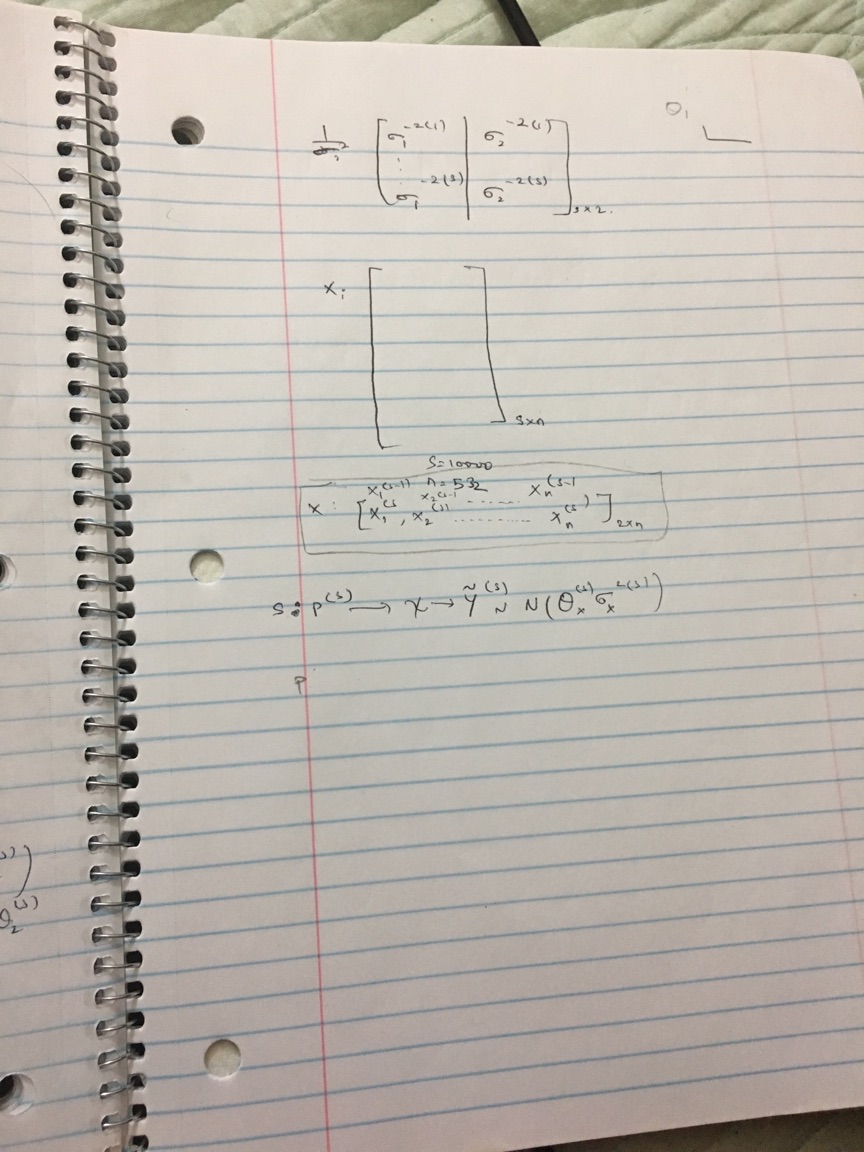 θ₁
1/σᵢ² [ σ₁⁻²⁽¹⁾ | σ₂⁻²⁽¹⁾
⋮
σ₁⁻²⁽ˢ⁾ | σ₂⁻²⁽ˢ⁾ ]s×2.
xᵢ [ ]s×n
S=10000
n=532
x : [ x₁⁽ˢ⁻¹⁾ x₂⁽ˢ⁻¹ ...... xₙ⁽ˢ⁻¹
x₁⁽ˢ , x₂⁽ˢ⁾ .......... xₙ⁽ˢ⁾ ]2×n
s: p⁽ˢ⁾ → x → Ỹ⁽ˢ⁾ ~ N(θₓ⁽ˢ⁾ σₓ²⁽ˢ⁾)
P
⁽ˢ⁾)
θ₂⁽ˢ⁾